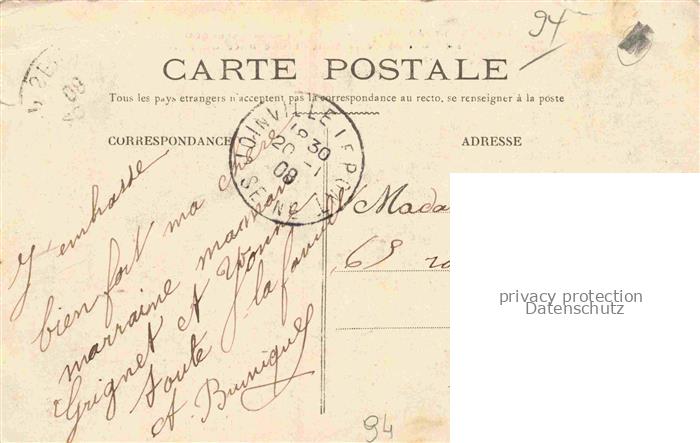 94
CARTE POSTALE
Tous les pays etrangers n'acceptent pas la correspondance au recto, se renseigner à la poste
CORRESPONDANCE
ADRESSE
JOINVILLE LE PONT
18 30
20 - 1
08
SEINE
J'embrasse
bien fort ma chère
marraine maman
Grignet et Yvonne
toute la famille
A.
Mada
63
privacy protection
Datenschutz
94